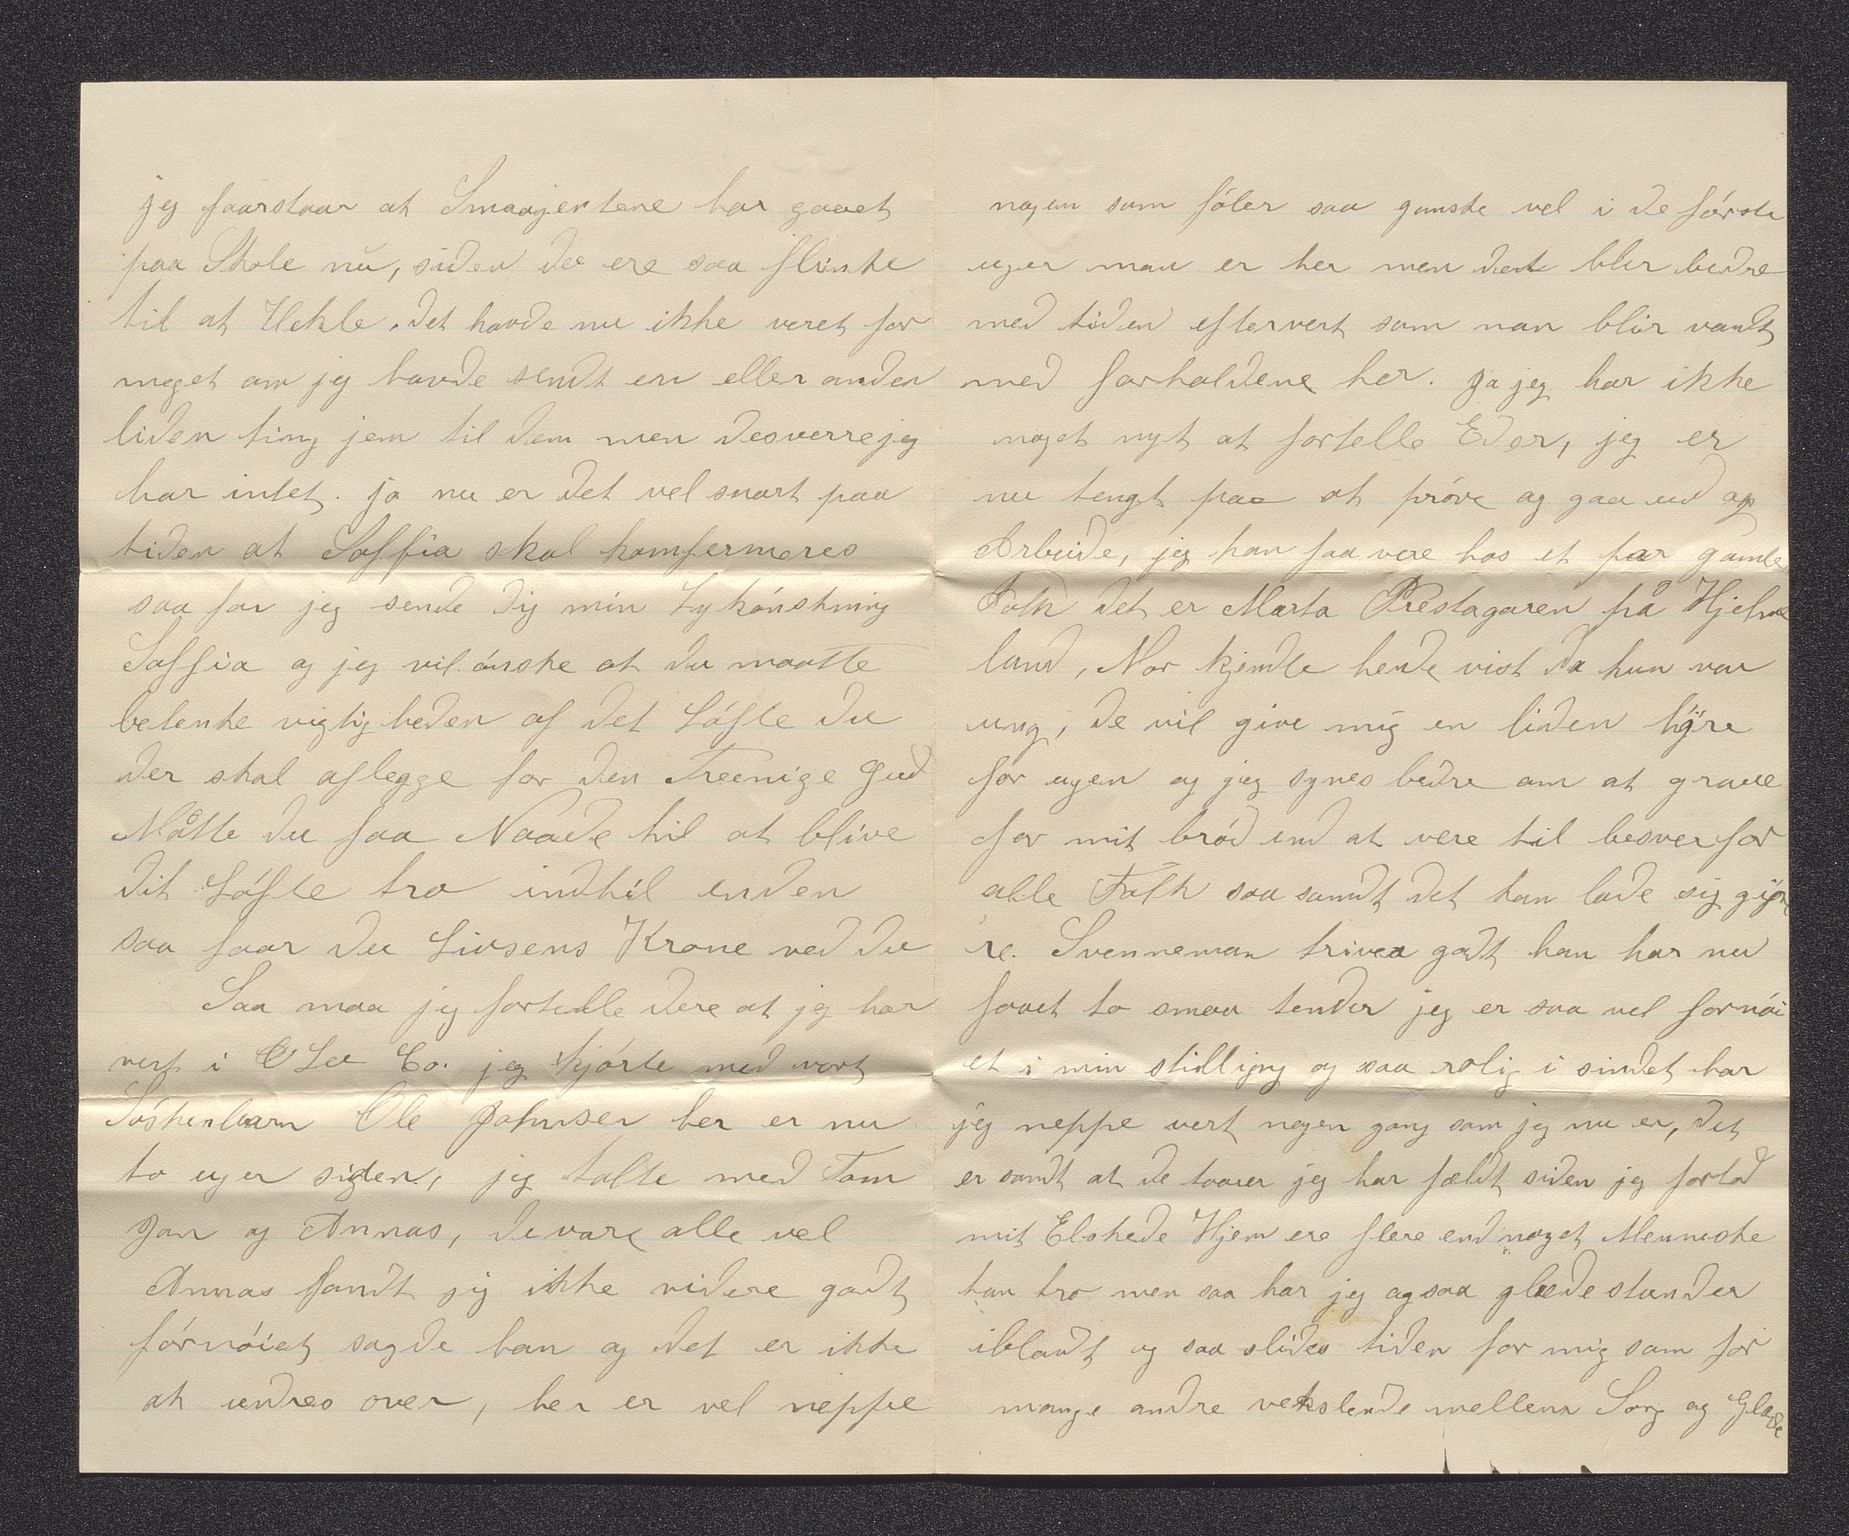 jeg faarstaar at Smaajentene har gaaet
paa Skole nŭ, siden de ere saa flinke
til at Hekle. Det havde nu ikke veret for
meget om jeg havde sendt en eller anden
liden ting jem til dem men desverre jeg
har intet. ja nu er det vel snart paa
tiden at Soffia skal komfermeres
saa for jeg sende dig min Lykónskning
Soffia og jeg vil ónske at du maatte
betenke vigtigheden af det Lófte du
der skal aflegge for den Treenige Gud
Måtte du faa Naade til at blive
dit Lófte tro indtil enden
saa faar du Livsens Krone ved du
Saa maa jeg fortelle dere at jeg har
vert i Lee Co. jeg kjórte med vort
Sóskenbarn Ole Johnsen her er nu
to uger siden, jeg talte med Tom
Jon og Annas, de vare alle vel
Annas fandt jeg ikke videre godt
fórnóiet sagde han og det er ikke
at undres over, her er vel neppe
nogen som fóler saa ganske vel i de fórste
uger man er her men det blir bedre
med tiden eftervert som man blir vandt
med forholdene her. Ja jeg har ikke
noget nyt at fortelle Eder, jeg er
nu tengt paa at próve og gaa ud op
Arbeide, jeg kan faa vere hos et par gamle
Folk det er Marta Prestagaren på Hjelme
land, Mor kjendte hende vist da hun var
ung, de vil give mig en liden hÿre
for ugen og jeg synes bedre om at grave
for mit bród end at vere til besver for
alle Folk saa sandt det kan lade sig gjó
re. Svenneman trives godt han har nu
faaet to smaa tender jeg er saa vel fornói
et i min stilling og saa rolig i sindet har
jeg neppe vert nogen gang som jeg nu er, det
er sandt at de taarer jeg har fældt siden jeg forlod
mit Elskede Hjem ere flere end noget Menneske
kan tro men saa har jeg agsaa glæde stunder
iblandt og saa slides tiden for mig som for
mange andre vekslende mellem Sorg og Glæde